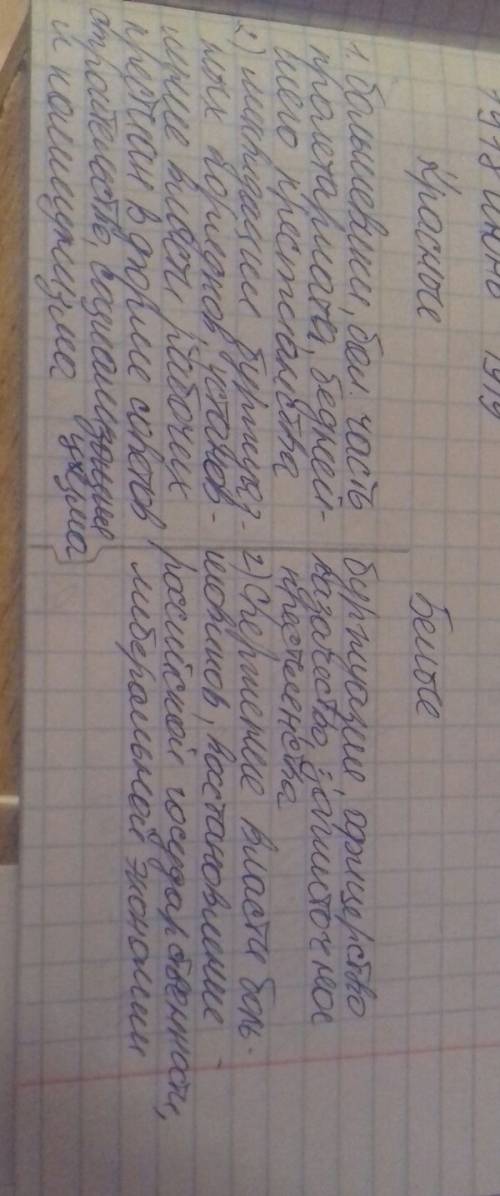 1918 июнь 1919
Красные
Белые
1. большевики, бол. часть
пролетариата, бедней-
шего крестьянства
2) ликвидации буржуаз-
ных порядков, установ-
ление власти рабочих
крестьян в форме советов,
строительство, социализма
и коммунизма
буржуазия, офицерство
казачество, зажиточное
крестьянства
2) Свержение власти боль-
шевиков, востановление
российской государственности,
либеральной экономики